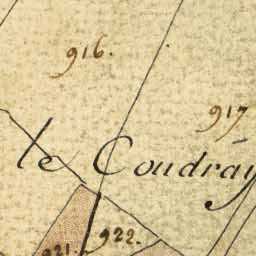 916.
917
le Coudray
922.
921.